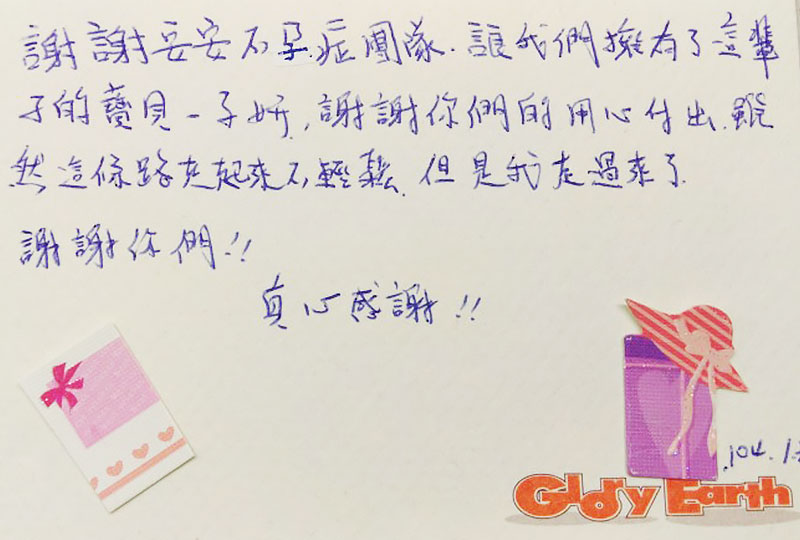 謝謝妥安不孕.症團隊.讓我們擁有了這輩
子的寶貝-子妍,謝謝你們的用心付出.雖
然這條路走起來不輕鬆.但是我走過來了.
謝謝你們!!
真心感謝!!
.104.1.
Glory Earth